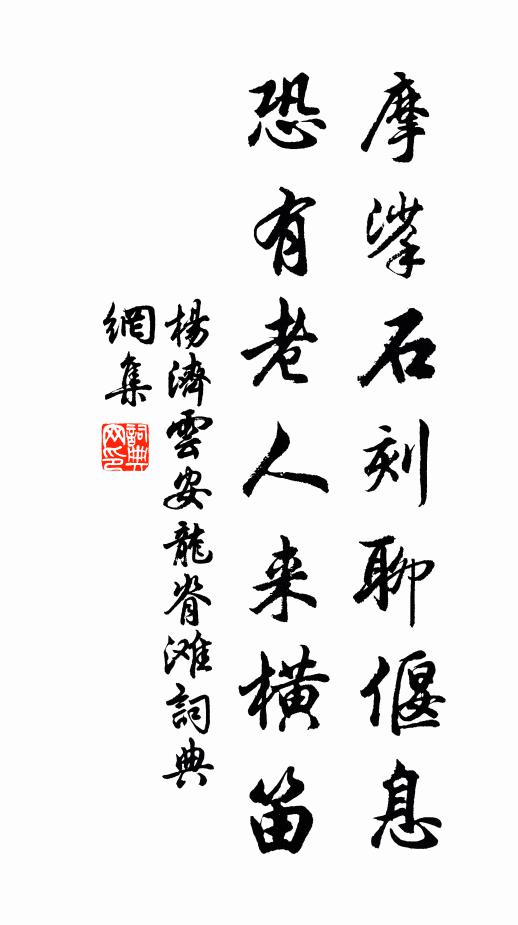 摩挲石刻聊偃息
恐有老人来橫笛
楊濟雲安龍脊灘詞典
網集
詞典網印